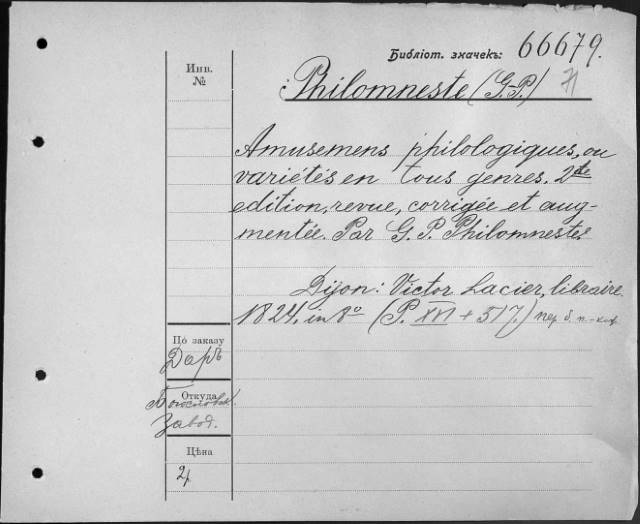 Библіот. значекъ: 66679.
Инв.
№
Philomneste (G.-P.)
Amusemens philologiques, ou
variétés en tous genres. 2de
edition, revue, corrigée et aug-
mentée. Par G. P. Philomneste.
Dijon: Victor Lacier, libraire
1824, in 8o (P. XVI + 517.) пер. б. п.-к.
По заказу
Даръ
Откуда
Богословск.
Завод.
Цѣна
2р